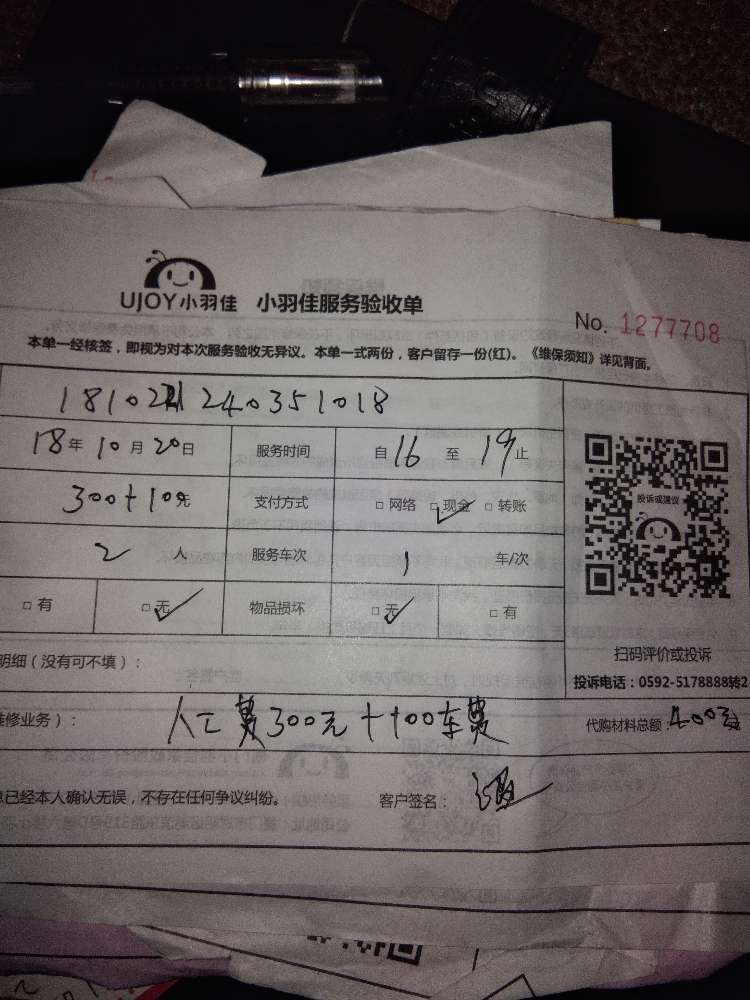 UJOY小羽佳 小羽佳服务验收单
No. 1277708
本单一经核签，即视为对本次服务验收无异议。本单一式两份，客户留存一份(红)。《维保须知》详见背面。
240351018
18年10月20日 服务时间 自16至19止
300+10元 支付方式 □ 网络 □ 现金 □ 转账
2人 服务车次 1 车/次
□ 有 □ 无 物品损坏 □ 无 □ 有
投诉或建议
扫码评价或投诉
投诉电话：0592-5178888转2
明细（没有可不填）：
维修业务）： 人工费300元+100车费 代购材料总额：400元
息已经本人确认无误，不存在任何争议纠纷。 客户签名：